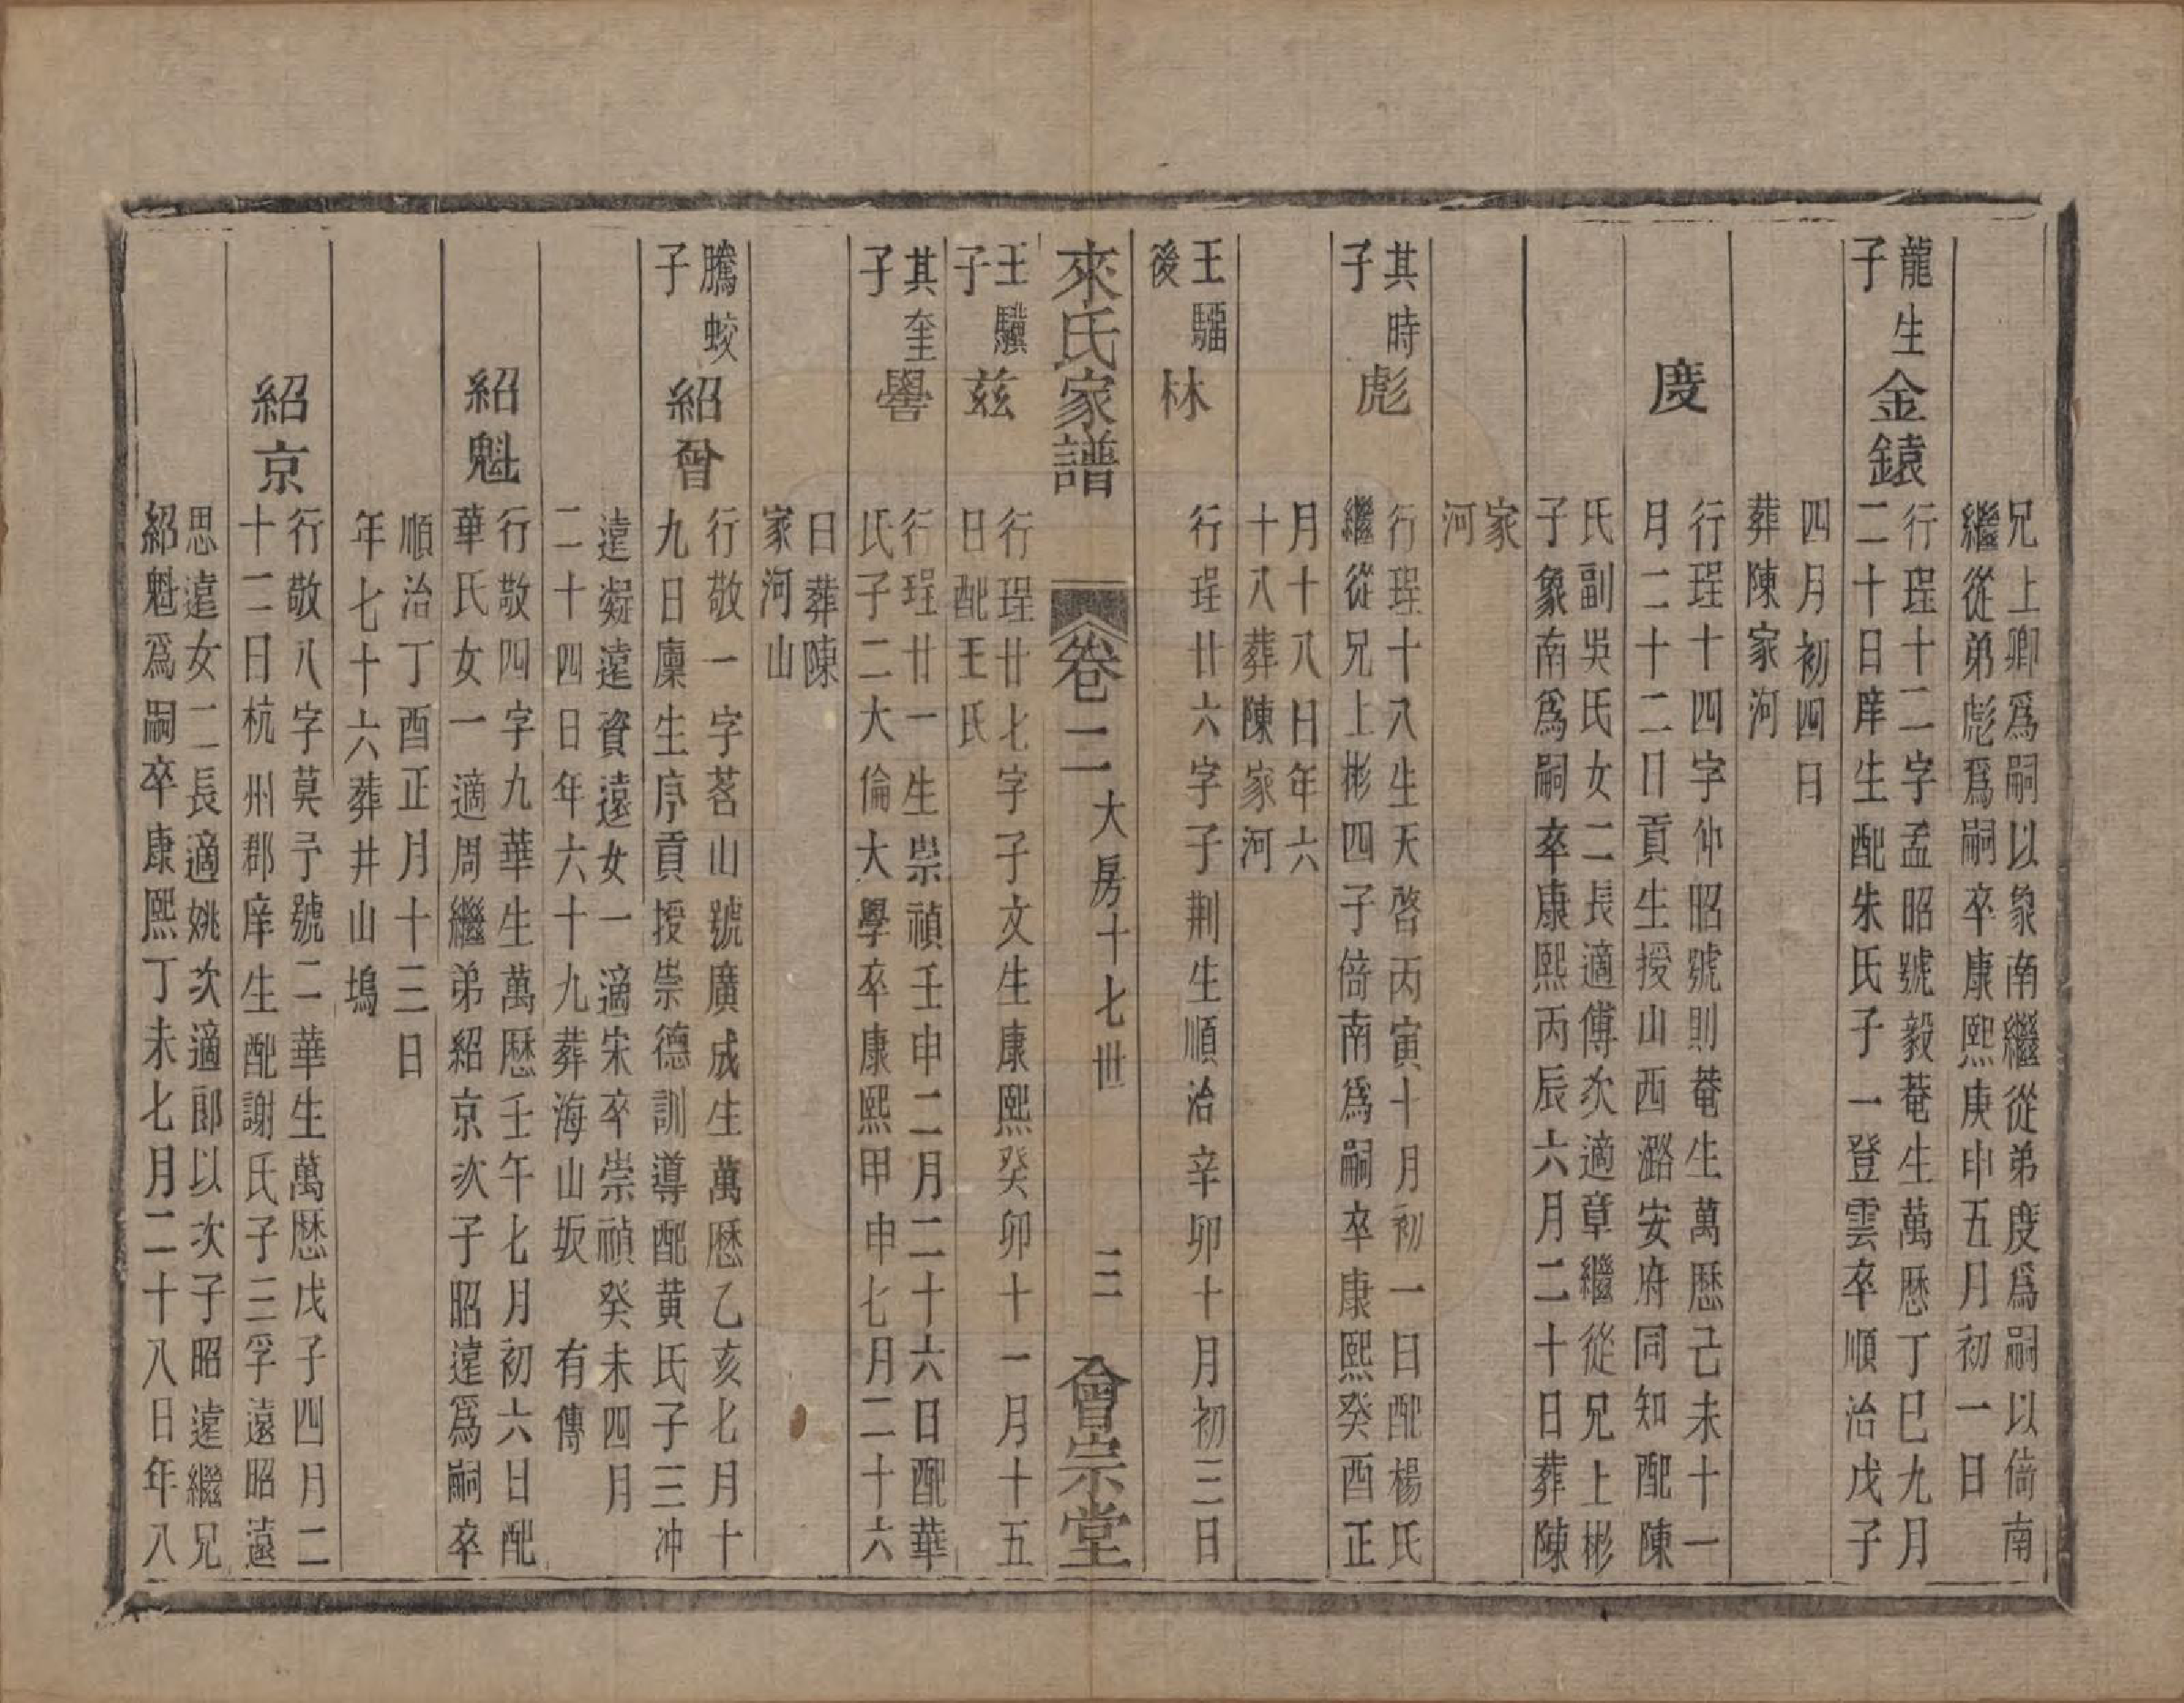 兄上卿爲嗣以象南繼從弟度爲嗣以倚南
繼從弟彪爲嗣卒康熙庚申五月初一日
龍生子
金鎱
行珵十二字孟昭號毅菴生萬歷丁巳九月
二十日庠生配朱氏子一登雲卒順治戊子
四月初四日
葬陳家河
度
行珵十四字仲昭號則菴生萬歷己未十一
月二十二日貢生授山西潞安府同知配陳
氏副吳氏女二長適傅次適章繼從兄上彬
子象南爲嗣卒康熙丙辰六月二十日葬陳
家
河
其時子
彪
行珵十八生天啓丙寅十月初一日配楊氏
繼從兄上彬四子倚南爲嗣卒康熙癸酉正
月十八日年六
十八葬陳家河
王騮後
林
行珵廿六字子荆生順治辛卯十月初三日
來氏家譜
卷二
大房十七世
三
會宗堂
王驥子
茲
行珵廿七字子文生康熙癸卯十一月十五
日配王氏
其奎子
譽
行珵廿一生崇禎壬申二月二十六日配華
氏子二大倫大學卒康熙甲申七月二十六
日葬陳
家河山
騰蛟子
紹曾
行敬一字茗山號廣成生萬歷乙亥七月十
九日廩生序貢授崇德訓導配黄氏子三冲
遠凝遠資遠女一適宋卒崇禎癸未四月
二十四日年六十九葬海山坂　有傳
紹魁
行敬四字九華生萬歷壬午七月初六日配
華氏女一適周繼弟紹京次子昭遠爲嗣卒
順治丁酉正月十三日
年七十六葬井山塢
紹京
行敬八字莫予號二華生萬歷戊子四月二
十二日杭州郡庠生配謝氏子三孚遠昭遠
思遠女二長適姚次適郎以次子昭遠繼兄
紹魁爲嗣卒康熙丁未七月二十八日年八